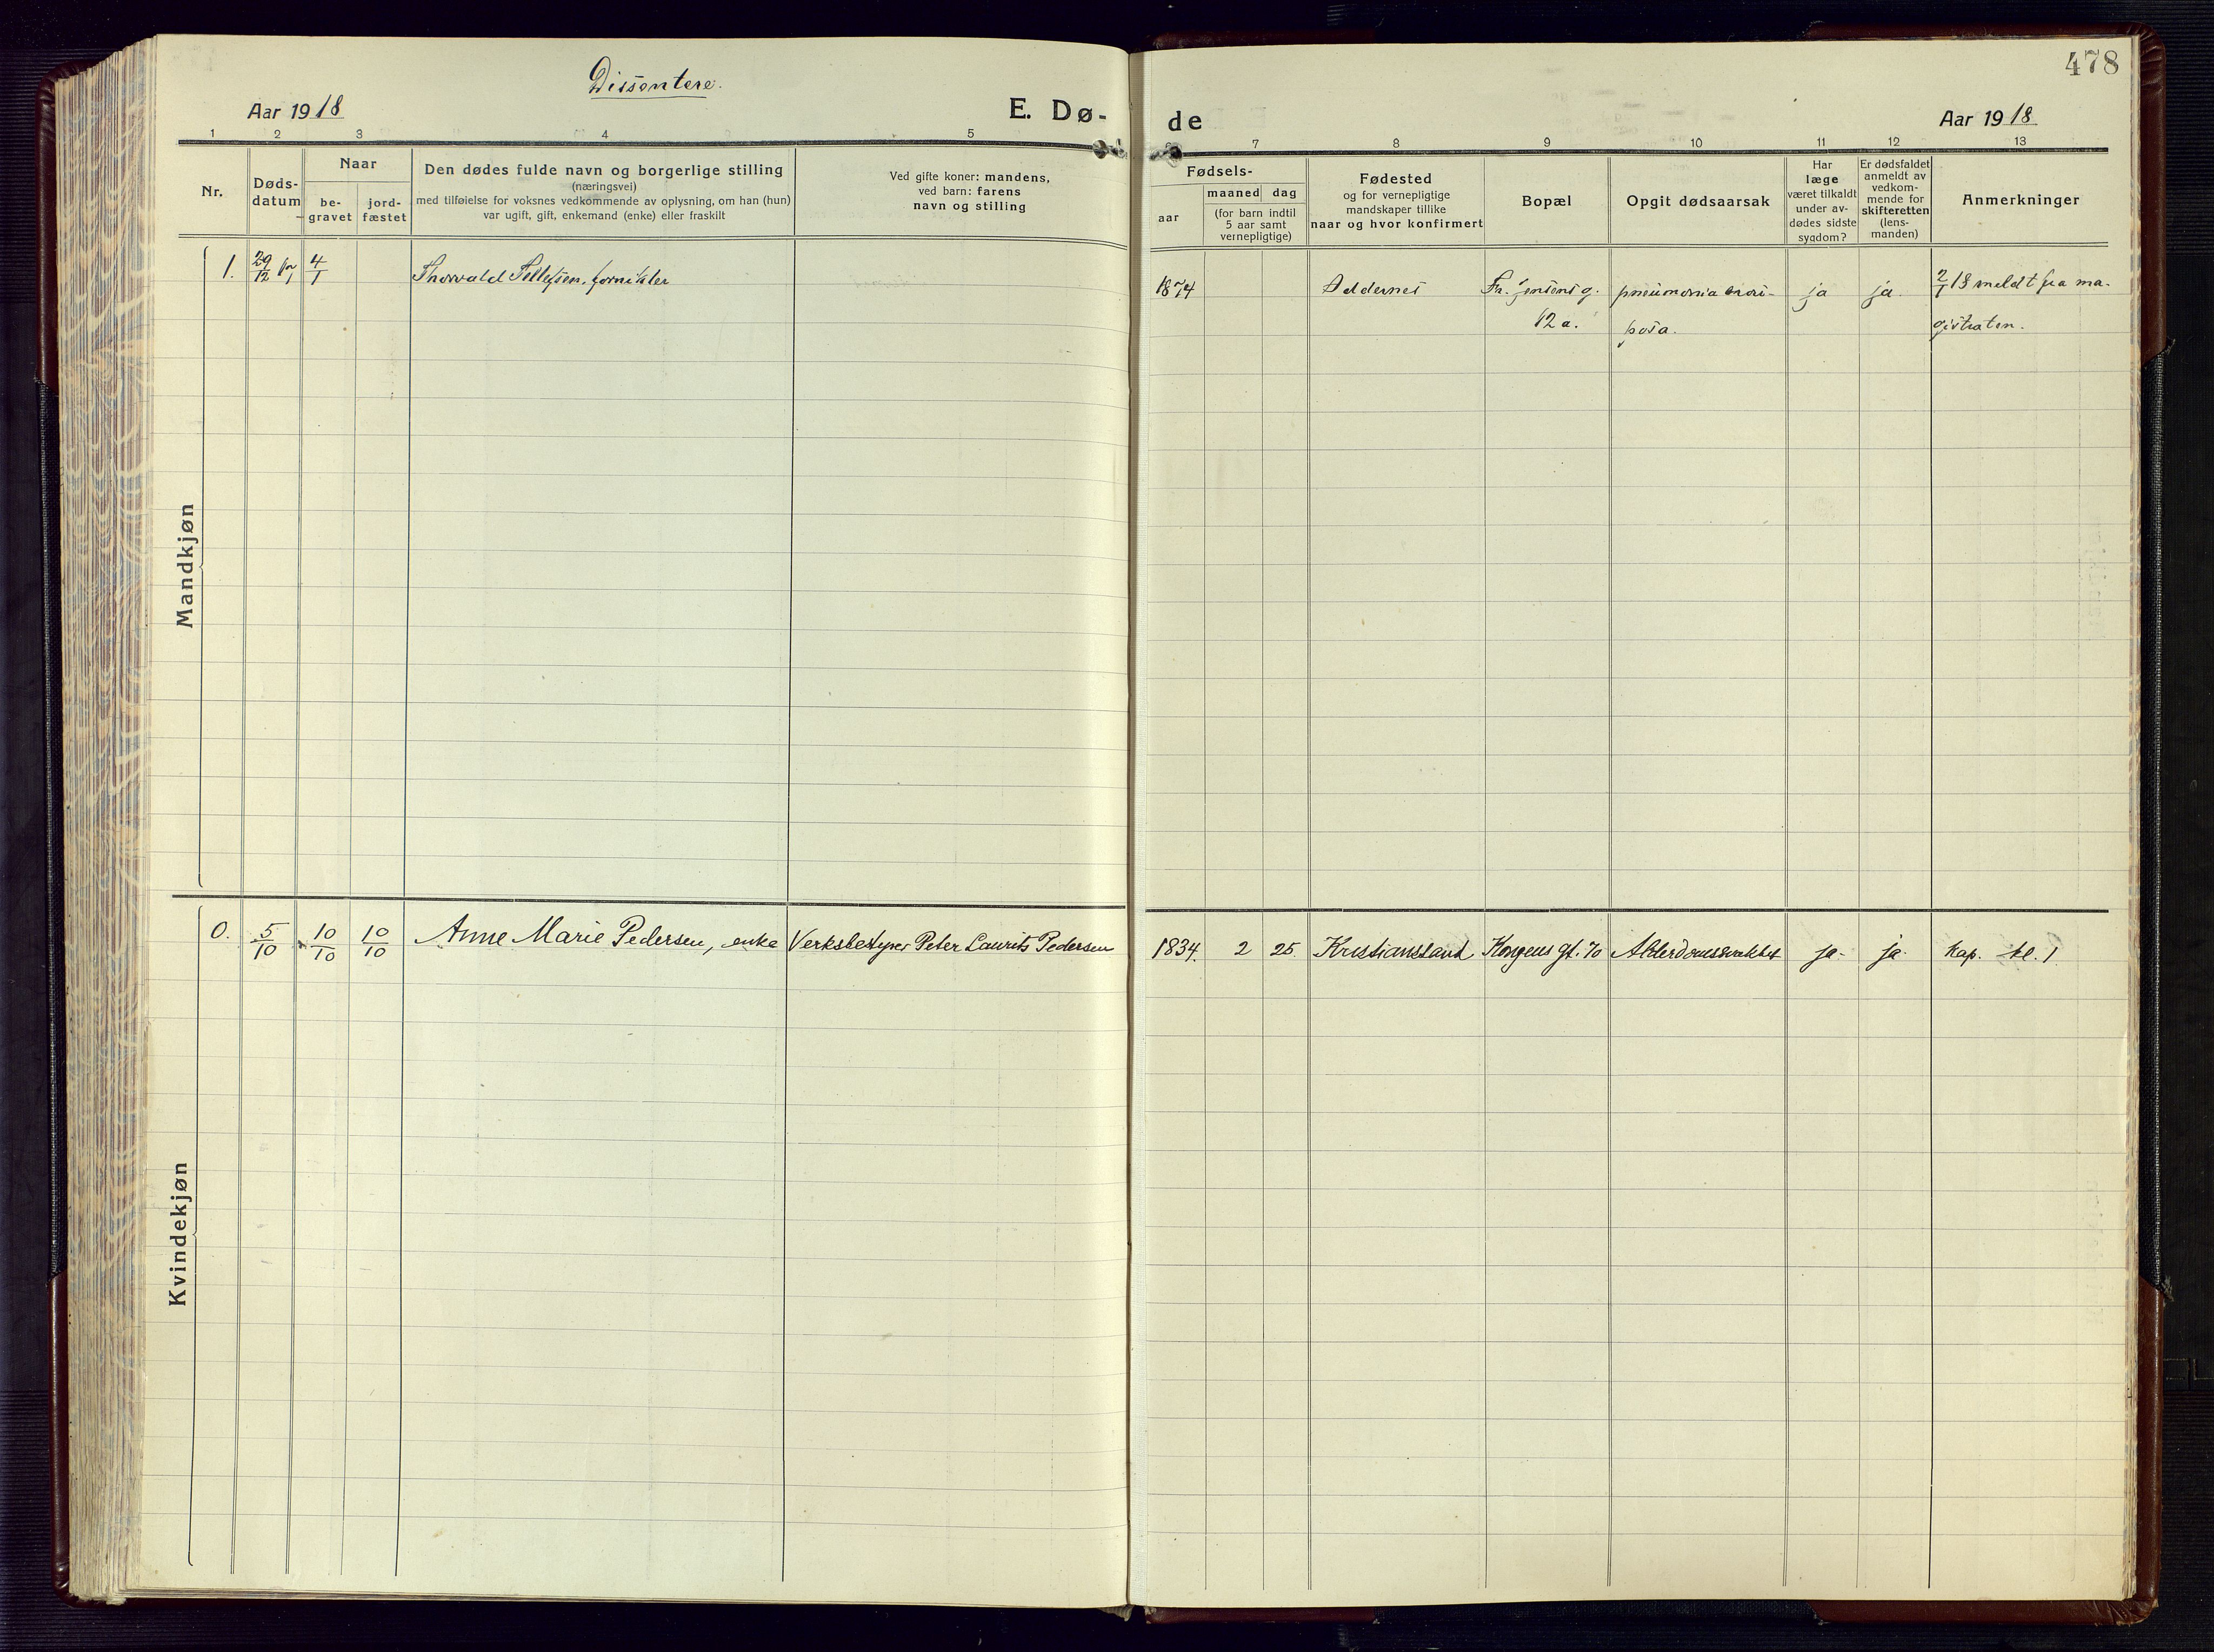 478
Dissentere.
Aar 1918
E. Dø-
de
Aar 1918
1 2 3 4 5
7 8 9 10 11 12 13
Nr.
Døds-
datum
Naar
be-
gravet
jord-
fæstet
Den dødes fulde navn og borgerlige stilling
(næringsvei)
med tilføielse for voksnes vedkommende av oplysning, om han (hun)
var ugift, gift, enkemand (enke) eller fraskilt
Ved gifte koner: mandens,
ved barn: farens
navn og stilling
Fødsels-
aar
maaned dag
(for barn indtil
5 aar samt
vernepligtige)
Fødested
og for vernepligtige
mandskaper tillike
naar og hvor konfirmert
Bopæl
Opgit dødsaarsak
Har
læge
været tilkaldt
under av-
dødes sidste
sygdom?
Er dødsfaldet
anmeldt av
vedkom-
mende for
skifteretten
(lens-
manden)
Anmerkninger
Mandkjøn
1. 29/12 4/1 Thorvald Tellefsen, fornikler 1874 Oddernes Fr. Jensens g. pneumonia crou- ja ja. 2/1 18 meldt fra ma-
12 a. posa. gistraten.
Kvindekjøn
0. 5/10 10/10 10/10 Anne Marie Pedersen, enke Verksbestyrer Peter Laurits Pedersen 1834. 2 25. Kristianssand Kongens gt. 70 Alderdomssvakhet ja- ja- Kap. kl. 1